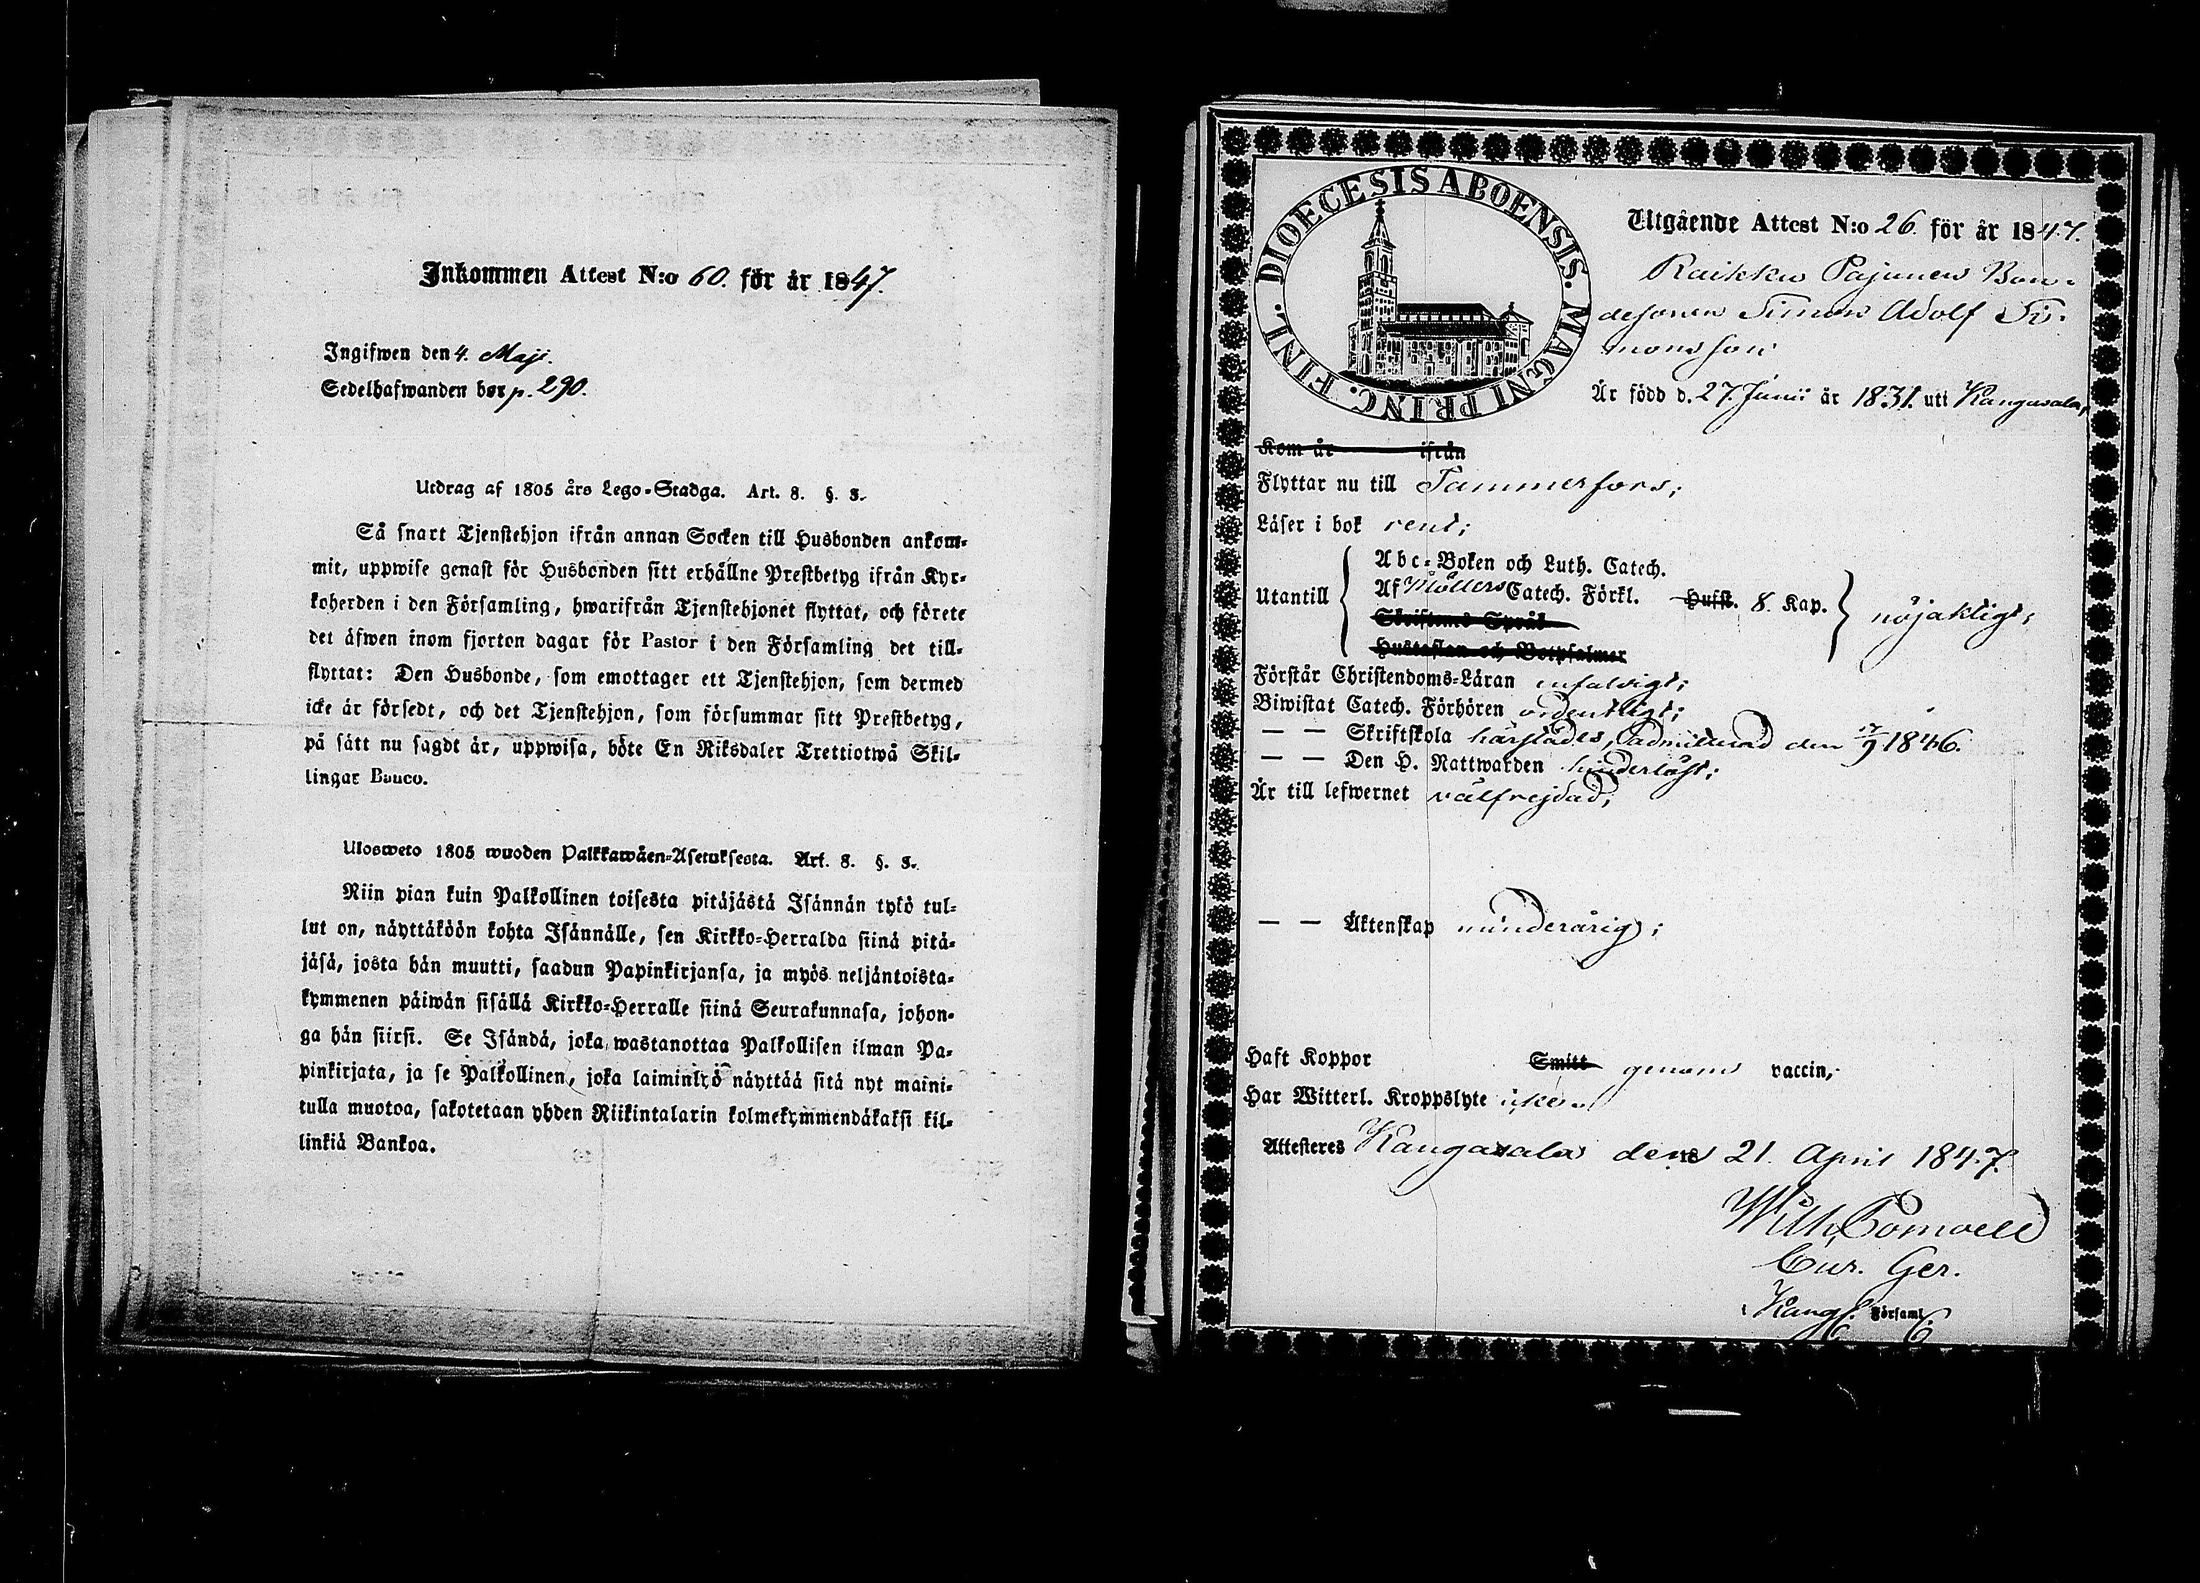 Inkommen Attest N:o 60. för år 1847.
Ingifwen den 4. Maji.
Sedelhafwanden bor p. 290.
Utdrag af 1805 års Lego-Stadga. Art. 8. §. 3.
Så snart Tjenstehjon ifrån annan Socken till Husbonden ankom-
mit, uppwise genast för Husbonden sitt erhållne Prestbetyg ifrån Kyr-
koherden i den Församling, hwarifrån Tjenstehjonet flyttat, och förete
det äfwen inom fjorton dagar för Pastor i den Församling det till-
flyttat: Den Husbonde, som emottager ett Tjenstehjon, som dermed
icke är försedt, och det Tjenstehjon, som försummar sitt Prestbetyg,
på sätt nu sagdt är, uppwisa, böte En Riksdaler Trettiotwå Skil-
lingar Banco.
Ulosweto 1805 wuoden Palkkawäen-Asetuksesta. Art. 8. §. 3.
Niin pian kuin Palkollinen toisesta pitäjästä Isännän tykö tul-
lut on, näyttäköön kohta Isännälle, sen Kirkko-Herralda siinä pitä-
jäsä, josta hän muutti, saadun Papinkirjansa, ja myös neljäntoista-
kymmenen päiwän sisällä Kirkko-Herralle siinä Seurakunnasa, johon-
ga hän siirsi. Se Isändä, joka wastanottaa Palkollisen ilman Pa-
pinkirjata, ja se Palkollinen, joka laiminlyö näyttää sitä nyt maini-
tulla muotoa, sakotetaan yhden Riikintalarin kolmekymmendäkaksi kil-
linkiä Bankoa.
DIOECESIS ABOENSIS. MAGNI PRINC. FINL.
Utgående Attest N:o 26. för år 1847.
Raikku Pajunen Bon-
desonen Simon Adolf Si-
monsson
Är född d. 27. Junii år 1831. uti Kangasala,
Kom år ifrån
Flyttar nu till Tammerfors;
Läser i bok rent;
Abc-Boken och Luth. Catech.
Utantill Af Möllers Catech. Förkl. Hufst. 8. Kap. nöjaktigt;
Skriftenes Språk
Hustaflan och Botpsalmer
Förstår Christendoms-Läran enfaldigt;
Biwistat Catech. Förhören ordentligt;
— — Skriftskola härstädes, admitterad den 1846.
— — Den H. Nattwarden hinderlöst;
Är till lefwernet välfrejdad;
— — Äktenskap minderårig;
Haft Koppor Smitt genom vaccin,
Har Witterl. Kroppslyte icke.
Attesteres Kangasala den 21. April 1847.
Wilh.
Cur. Ger.
i Kang. Församl.